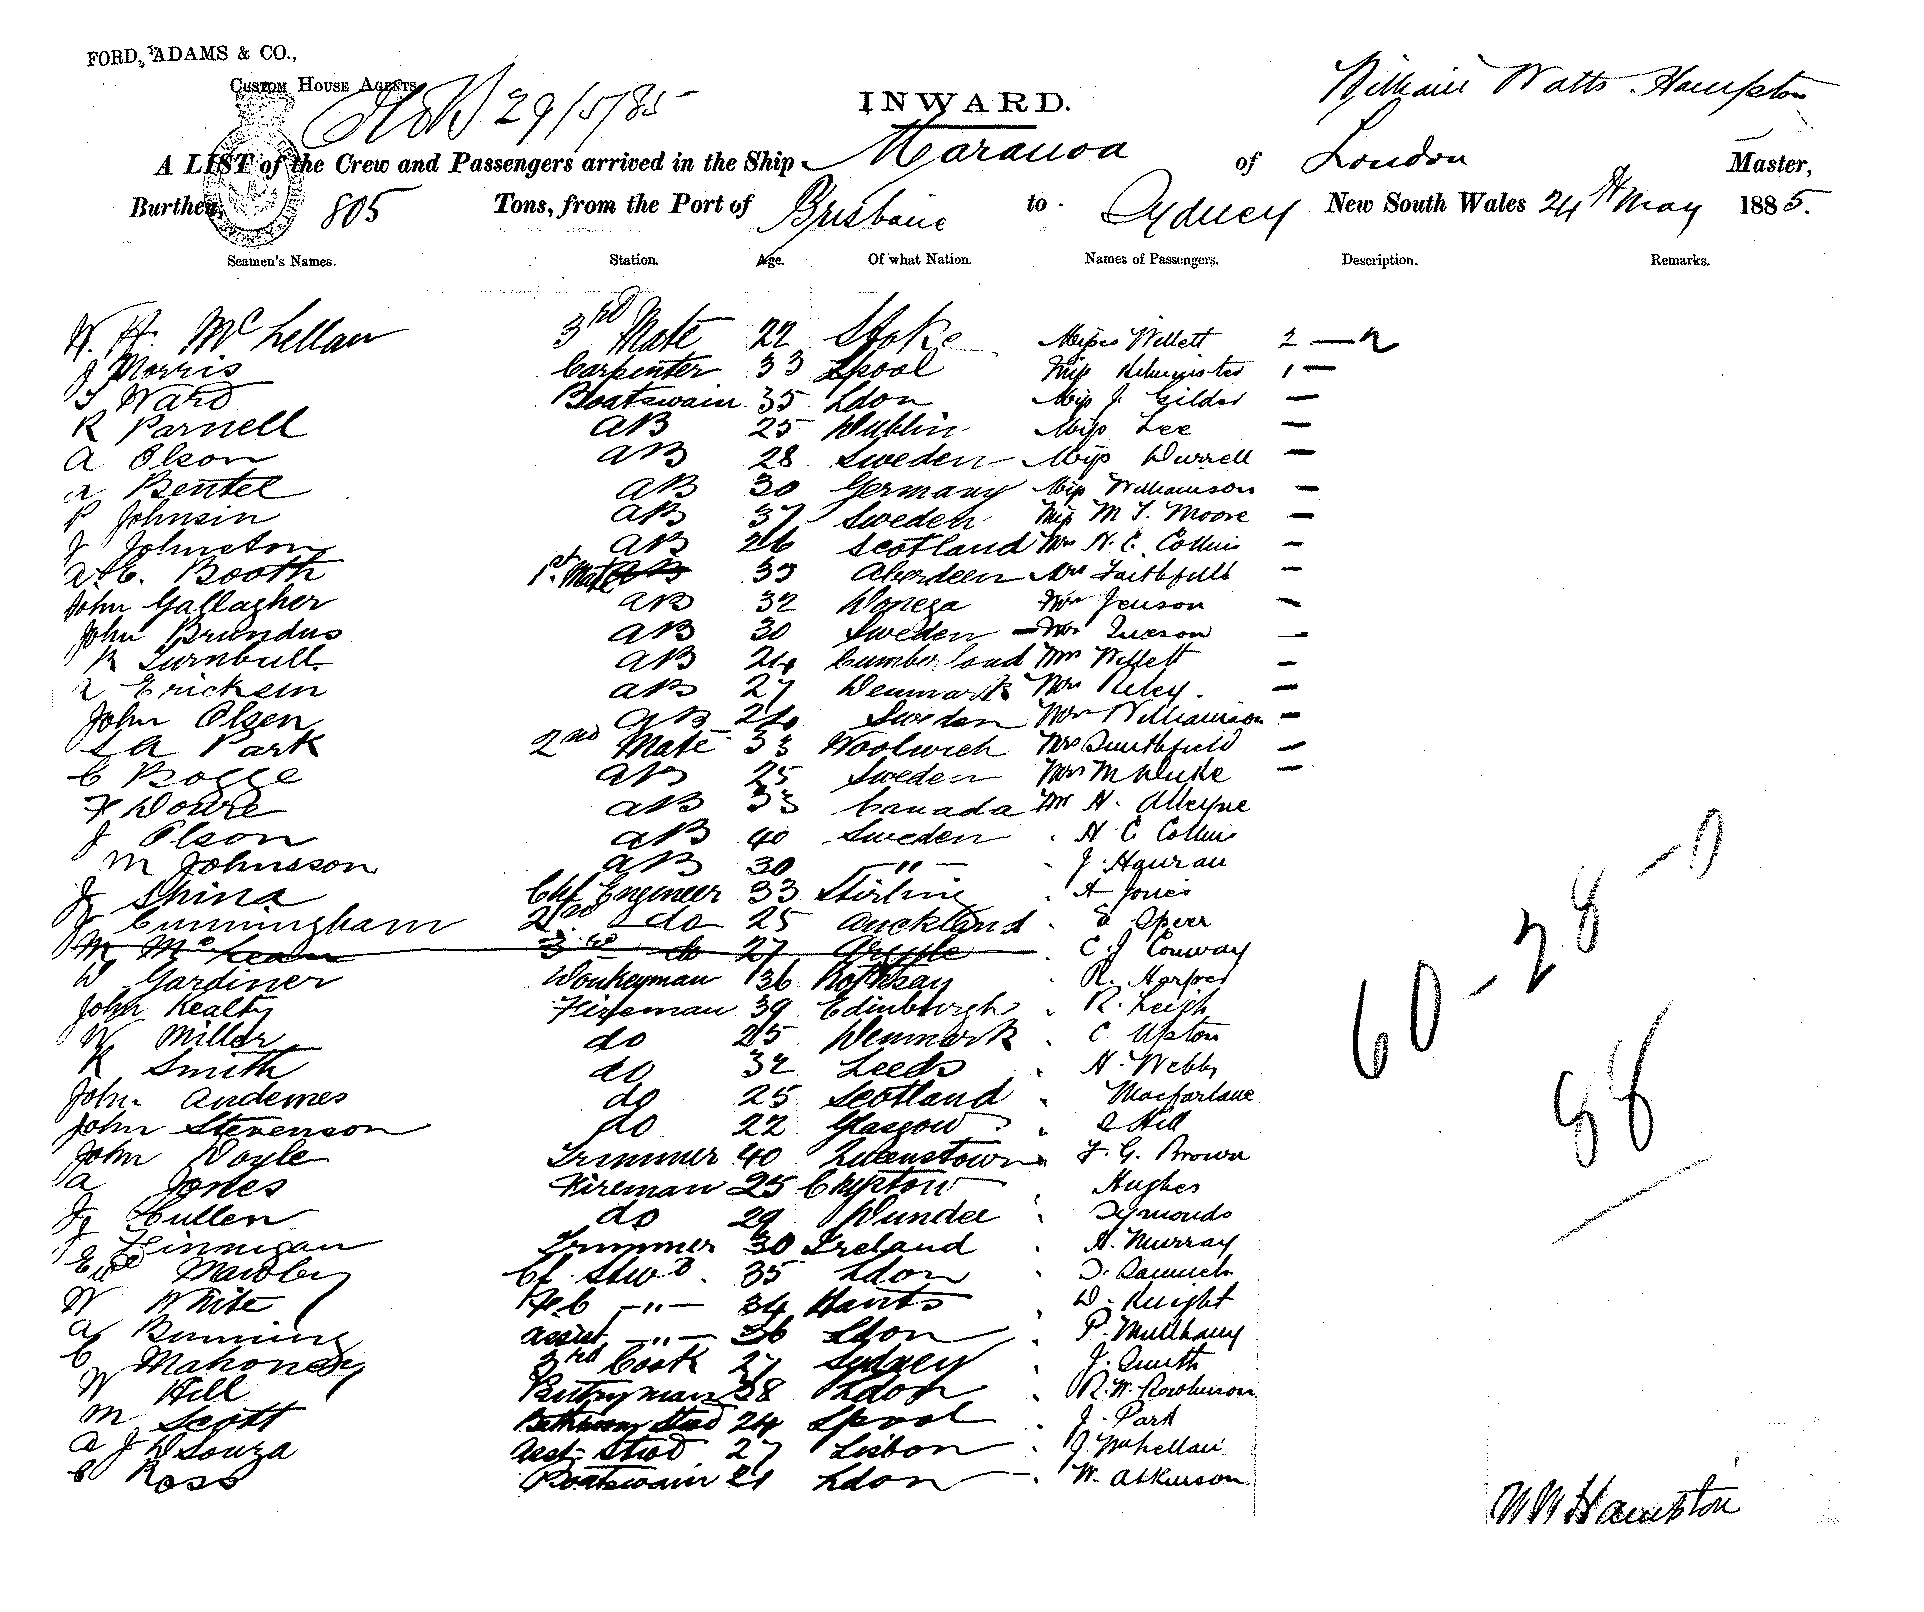 FORD, ADAMS & CO.,
CUSTOM HOUSE AGENTS
29/5/85
INWARD.
William Watts Hampton
A LIST of the Crew and Passengers arrived in the Ship Maranoa of London Master,
Burthen, 805 Tons, from the Port of Brisbane to Sydney New South Wales 24th May 1885.
Seamen's Names. Station. Age. Of what Nation. Names of Passengers. Description. Remarks.
W. H. McLellan 3rd Mate 22 Stoke Misses Willett 2 —
J Morris Carpenter 33 Lpool Miss 1 —
Ward Boatswain 35 Ldon Miss J. Gilder —
R Parnell AB 25 Dublin Miss Lee —
A Olson AB 28 Sweden Miss Durrell —
A Bentel AB 30 Germany Miss Williamson —
P Johnsin AB 37 Sweden Miss M. T. Moore —
J Johnston AB 26 Scotland Mrs N. C. Collins —
A. C. Booth 1st Mate 39 Aberdeen Mrs Faithfull —
John Gallagher AB 32 Donega Mrs Jenson —
John Brundus AB 30 Sweden Mrs —
R Turnbull AB 24 Cumberland Mrs Willett —
Ericksin AB 27 Denmark Mrs Riley. —
John Olsen AB 24 Sweden Mrs Williamson —
Park 2nd Mate 33 Woolwich Mrs Smithfield —
C Bogge AB 25 Sweden Mrs —
F Dowre AB 33 Canada Mr H. Alleyne
J Olson AB 40 Sweden . H C Collins
M Johnsson AB 30 — " — . J.
J Shina Chf Engineer 33 Stirling A Jones
J Cunningham 2nd do 25 Auckland . Speer
M McLean 3rd do 27 Argyle . C J Conway
W Gardiner Donkeyman 36 Rothsay . R. Harper
John Kealty Fireman 39 Edinburgh . R. Leigh
W Miller do 25 Denmark . C Upton
R Smith do 32 Leeds . H. Webb
John Andemes do 25 Scotland . Macfarlane
John Stevenson do 22 Glasgow . Hill
John Doyle Trimmer 40 Queenstown . F. G. Brown
A Jones Fireman 25 . Hughes
J Cullen do 29 Dundee . Symonds
J Finnigan Trimmer 30 Ireland . A. Murray
Mawbey Cf. Stwd. 35 Ldon .
W White F. C — " — 34 Hants . D. Knight
A Bunning Assist — " — 26 Ldon . P. Mullhany
C Mahoney 3rd Cook 27 Sydney . J. Smith
W Hill Pantryman 38 Ldon . R. W. Rawlinson
M Scott 24 Lpool . J. Park
A J D Souza Asst. Stwd 27 Lisbon . J. McLellan
C Ross Boatswain 21 Ldon . W. Atkinson
60 - 28 - 0
88
W W Hampton